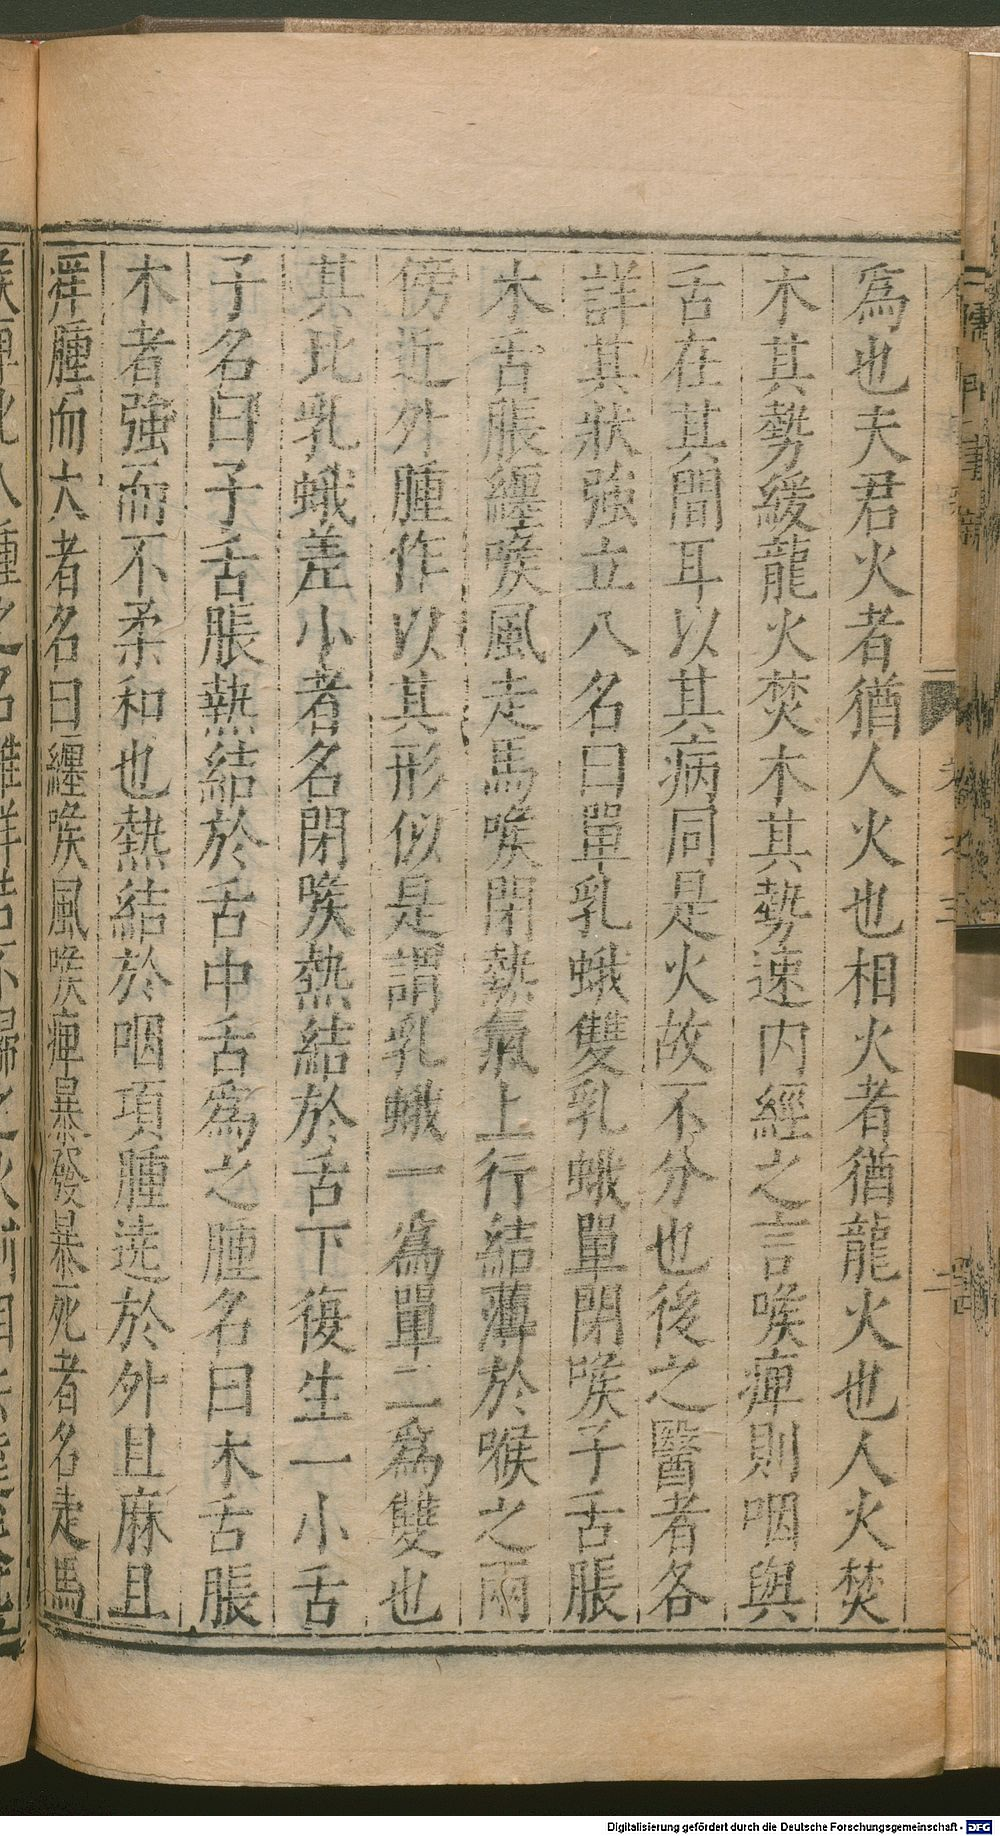 為也夫君火者猶人火也相火者猶龍火也人火焚
木其勢緩龍火焚木其勢速内經之言喉痺則咽與
舌在其間耳以其病同是火故不分也後之醫者各
詳其狀強立八名曰單乳蛾雙乳蛾單閉喉子舌脹
木舌脹纒喉風走馬喉閉熱氣上行結薄於喉之兩
傍近外腫作以其形似是謂乳蛾一為單二為雙也
其比乳蛾差小者名閉喉熱結於舌下復生一小舌
子名曰子舌脹熱結於舌中舌為之腫名曰木舌脹
木者強而不柔和也熱結於咽項腫遶於外且麻且
痒腫而大者名曰纒喉風喉痺暴發暴死者名走馬
Digitalisierung gefördert durch die Deutsche Forschungsgemeinschaft - DFG